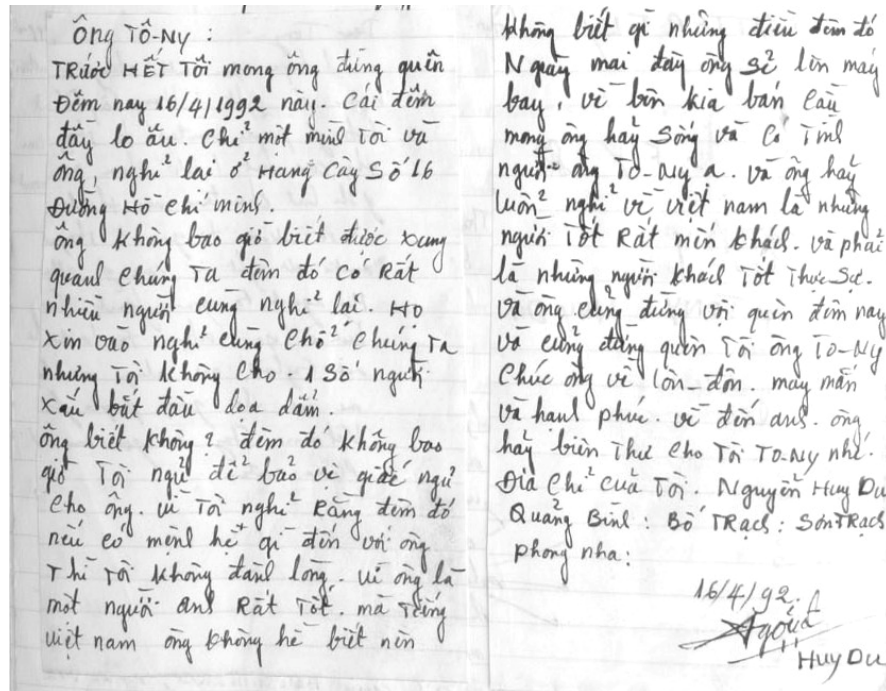 Ông TÔ-NY :
TRước HẾT Tôi mong ông đừng quên
Đêm nay 16/4/1992 này. Cái đêm
đầy lo âu. Chỉ một mình Tôi và
ông, nghỉ lại ở Hang Cây Số 16
Đường Hồ chí minh.
ông không bao giờ biết được xung
quanh chúng Ta đêm đó có Rất
nhiều người cùng nghỉ lại. Họ
xin vào nghỉ cùng chỗ chúng Ta
nhưng Tôi không cho. 1 Số người
xấu bắt đầu doạ dẫm.
ông biết không? đêm đó không bao
giờ Tôi ngủ để bảo vệ giấc ngủ
cho ông. vì Tôi nghĩ Rằng đêm đó
nếu có mệnh hệ gì đến với ông
Thì Tôi không đành lòng. vì ông là
một người anh Rất Tốt. mà Tiếng
việt nam ông không hề biết nên
không biết gì những điều đêm đó
Ngày mai đây ông sẽ lên máy
bay. về bên kia bán cầu
mong ông hãy Sống và có Tình
người ông TO-NY ạ. và ông hãy
luôn nghĩ về việt nam là những
người Tốt Rất mến khách. và phải
là những người khách Tốt Thực Sự.
và ông cũng đừng vội quên đêm nay
và cũng đừng quên Tôi ông TO-NY
Chúc ông về lôn-đôn. may mắn
và hạnh phúc. về đến anh. ông
hãy biên Thư cho Tôi TO-NY nhé.
Địa chỉ của Tôi. Nguyễn Huy Du
Quảng Bình : Bố TRạch : SơnTRạch
phong nha :
16/4/92.
Huy Du